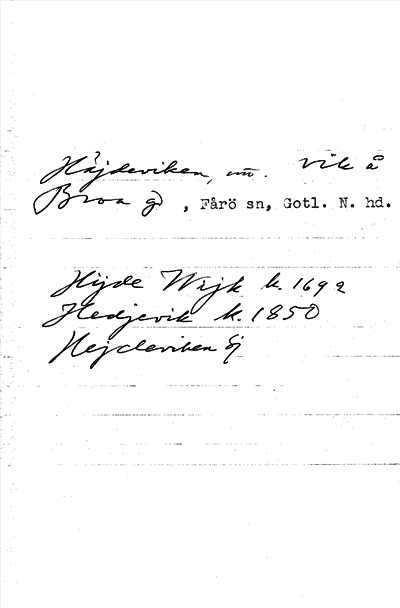 Häjdeviken, nn. vik å
Broa gd, Fårö sn, Gotl. N. hd.
Hijde Wijk k. 1692
Hedjevik k. 1850
Hejdeviken Ej